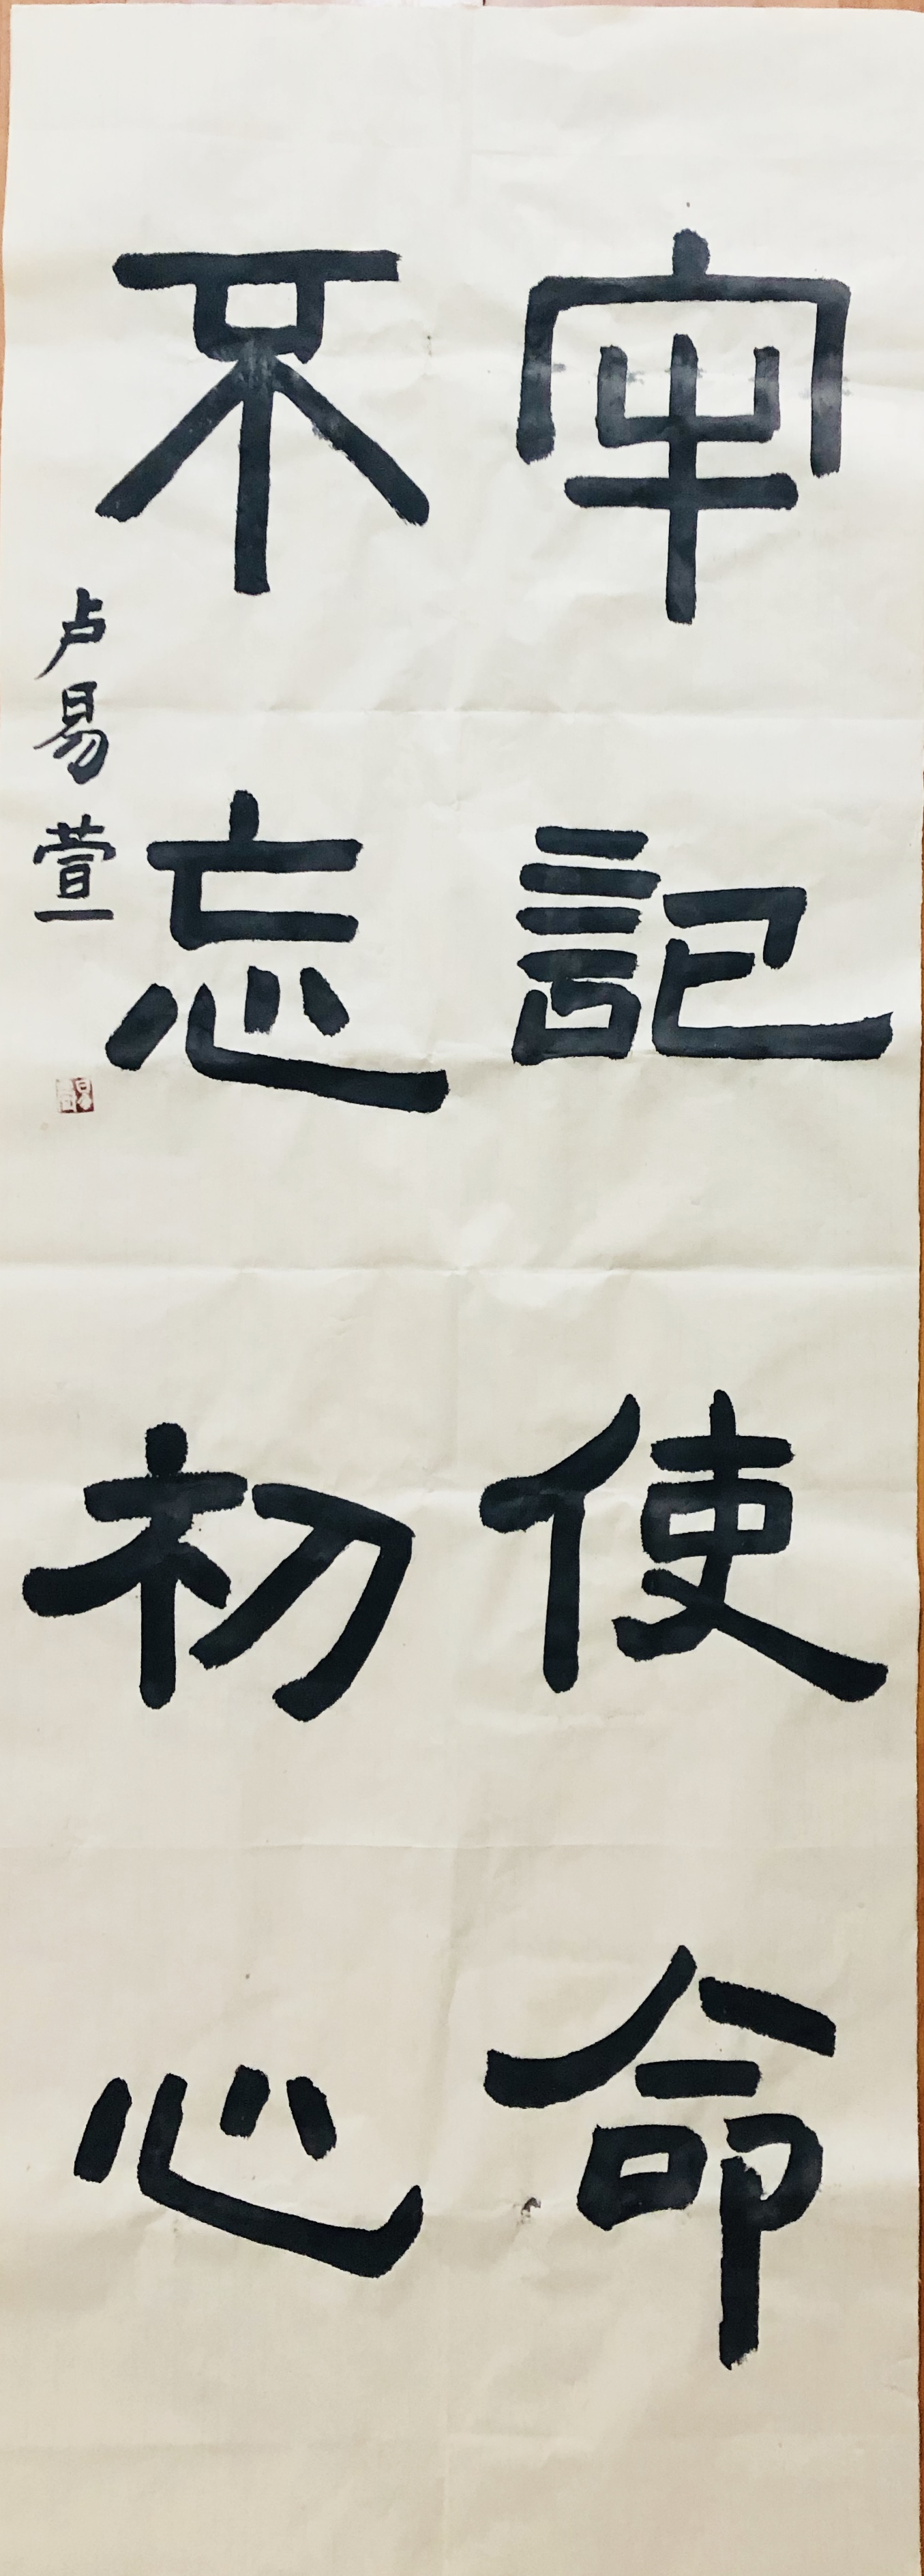 牢記使命
不忘初心
卢易萱